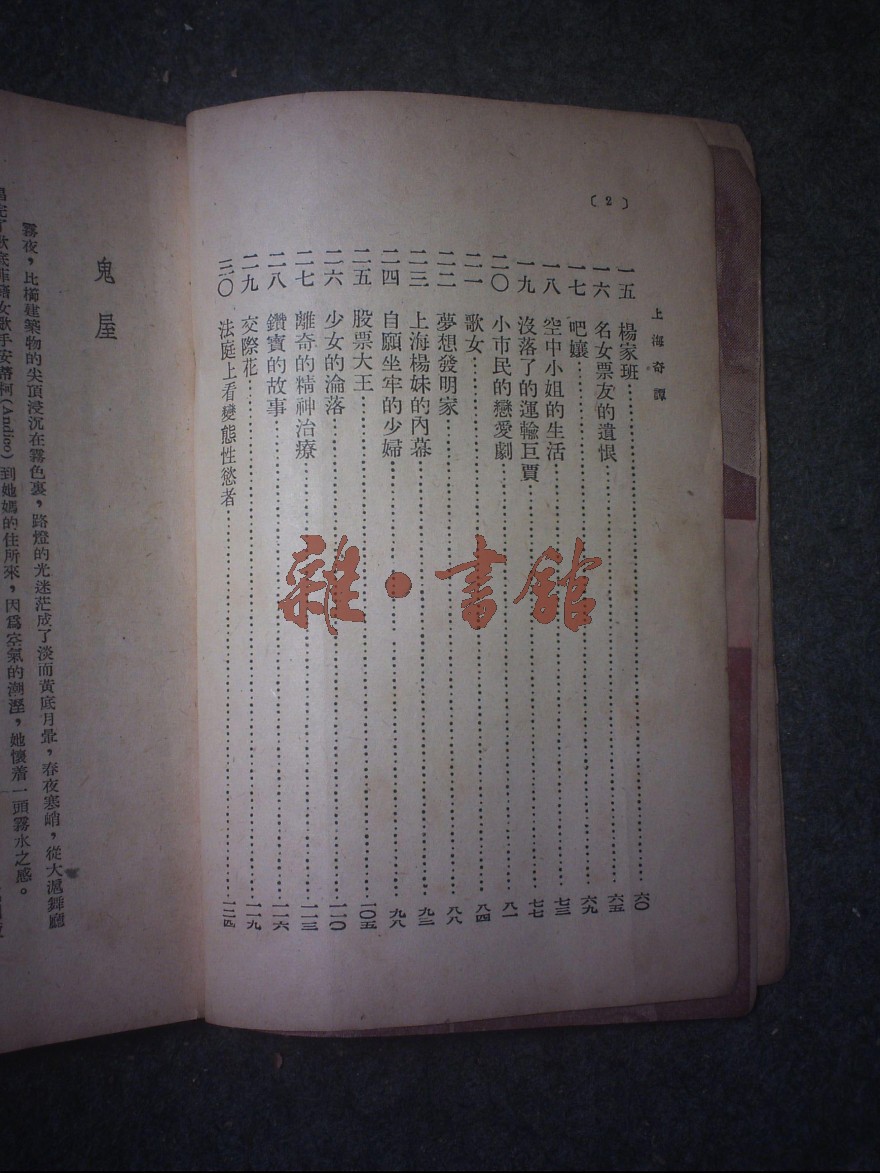 〔2〕
上海奇譚
一五 楊家班……六〇
一六 名女票友的遺恨……六五
一七 吧孃……六九
一八 空中小姐的生活……七三
一九 沒落了的運輸巨賈……七七
二〇 小市民的戀愛劇……八一
二一 歌女……八四
二二 夢想發明家……八八
二三 上海楊妹的內幕……九二
二四 自願坐牢的少婦……九八
二五 股票大王……一〇五
二六 少女的淪落……一一〇
二七 離奇的精神治療……一一三
二八 鑽寶的故事……一一六
二九 交際花……一一九
三〇 法庭上看變態性慾者……一二四
雜·書館
鬼屋
霧夜，比櫛建築物的尖頂浸沉在霧色裏，路燈的光迷茫成了淡而黃底月暈，春夜寒峭，從大滬舞廳
唱完了歌底菲籍女歌手安蒂柯(Andico)到她媽的住所來，因爲空氣的潮溼，她懷着一頭霧水之感。